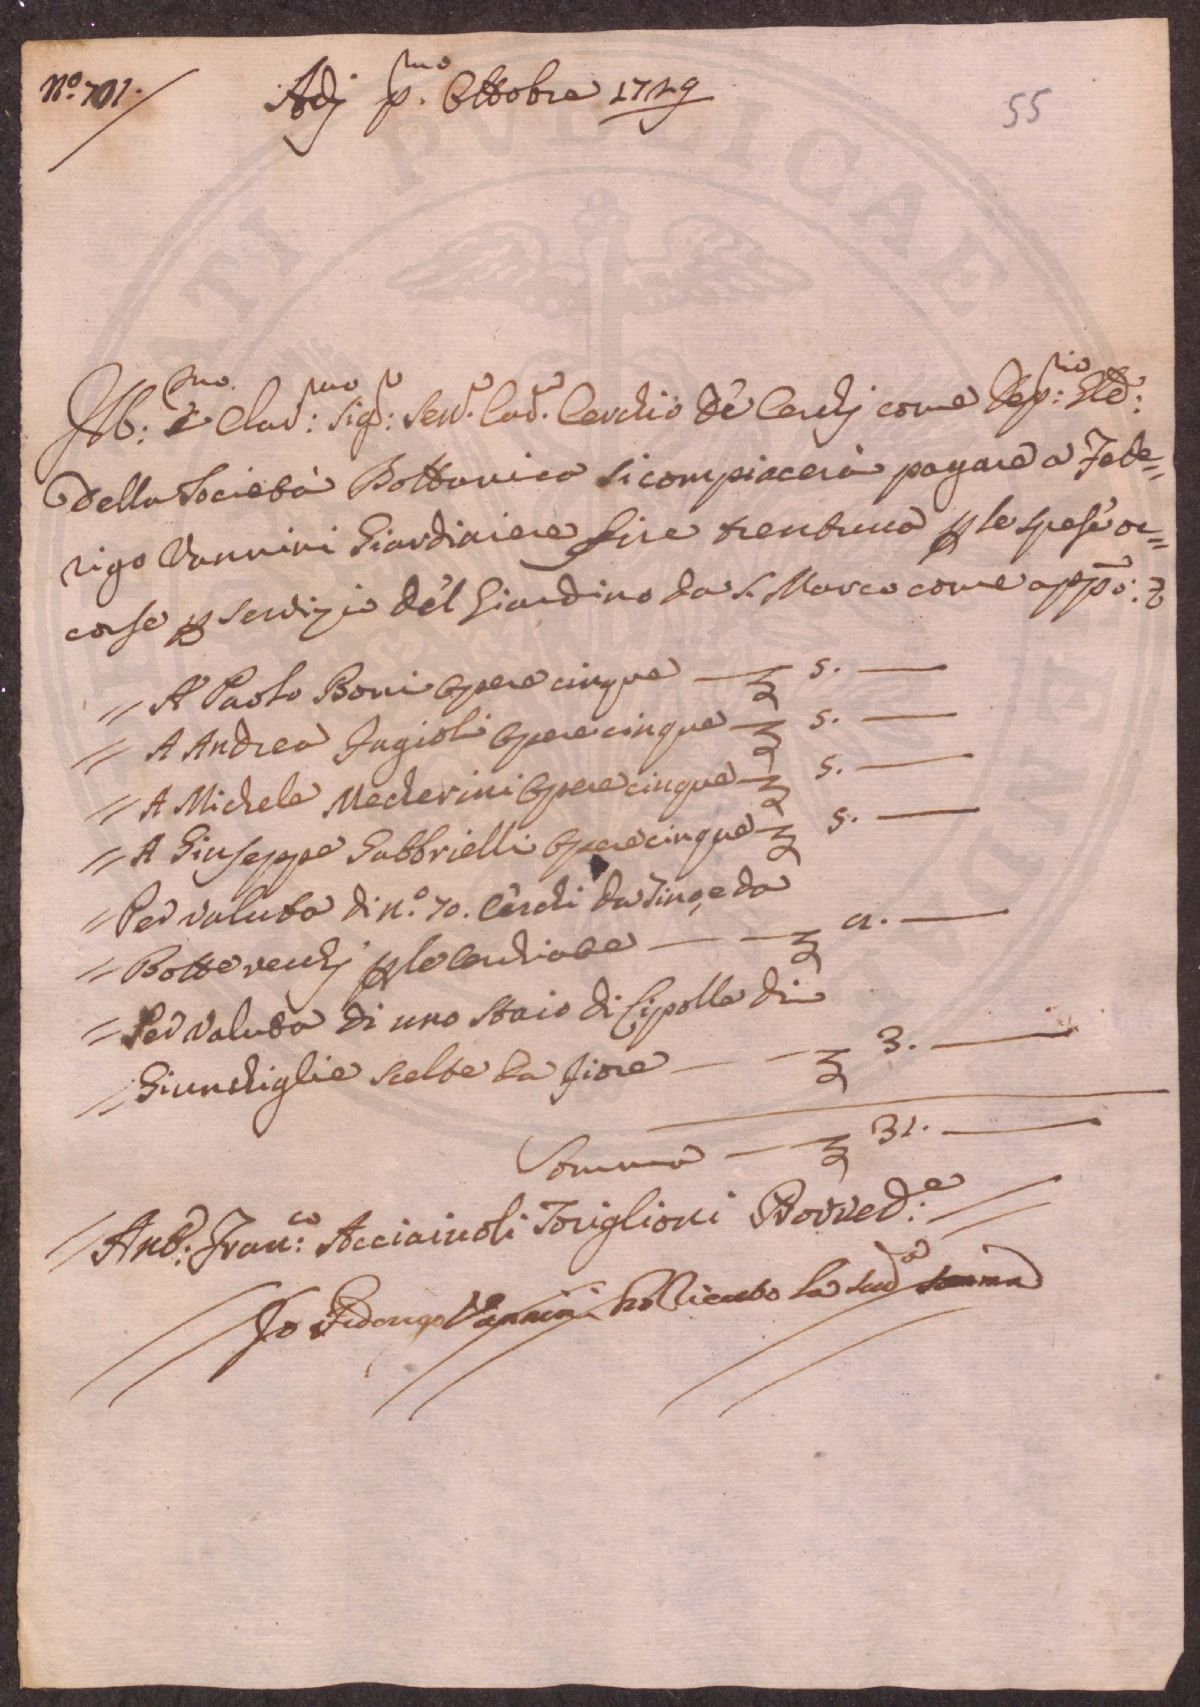 N.º 701.
Adj p.mo Ottobre 1729
55
Ill:mo e Clar:mo Sig:r Sen.r Cav.r Cerchio de Cerchj come Dep:rio
della Società Bottanica si compiacerà pagare a Fede=
rigo Vannini Giardiniere Lire trentuna p le spese oc=
corse p servizio del Giardino da S. Marco come app.o:
// A Paolo Boni Opere cinque — £ 5. —
// A Andrea Fagioli Opere cinque — £ 5. —
// A Michele Mecherini Opere cinque — £ 5. —
// A Giuseppe Gabbrielli Opere cinque £ 5. —
// Per valuta di n.º 70. Cerchi da Tino, e da
// Botte vecchj p le Cerchiate — — £ 8. —
// Per valuta di uno staio di Cipolle di
// Giunchiglie scelte da fiore — — £ 3. —
Somma — £ 31. —
// Ant: Fran:co Acciaiuoli Toriglioni Provved:e //
Io Federigo Vannini ho Riceuto la sud.a somma
ATI PVBLICAE